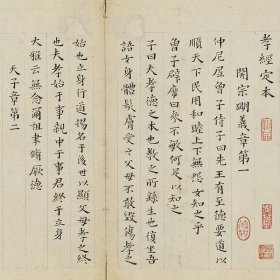 孝經定本
開宗明義章第一
仲尼凥曾子侍子曰先王有至德要道以
順天下民用和睦上下無怨女知之乎
曾子辟席曰參不敏何足以知之
子曰夫孝德之本也教之所繇生也復坐吾
語女身體髮膚受之父母不敢毀傷孝之
始也立身行道揚名于後世以顯父母孝之終
也夫孝始于事親中于事君終于立身
大雅云無念爾祖聿脩厥德
天子章第二